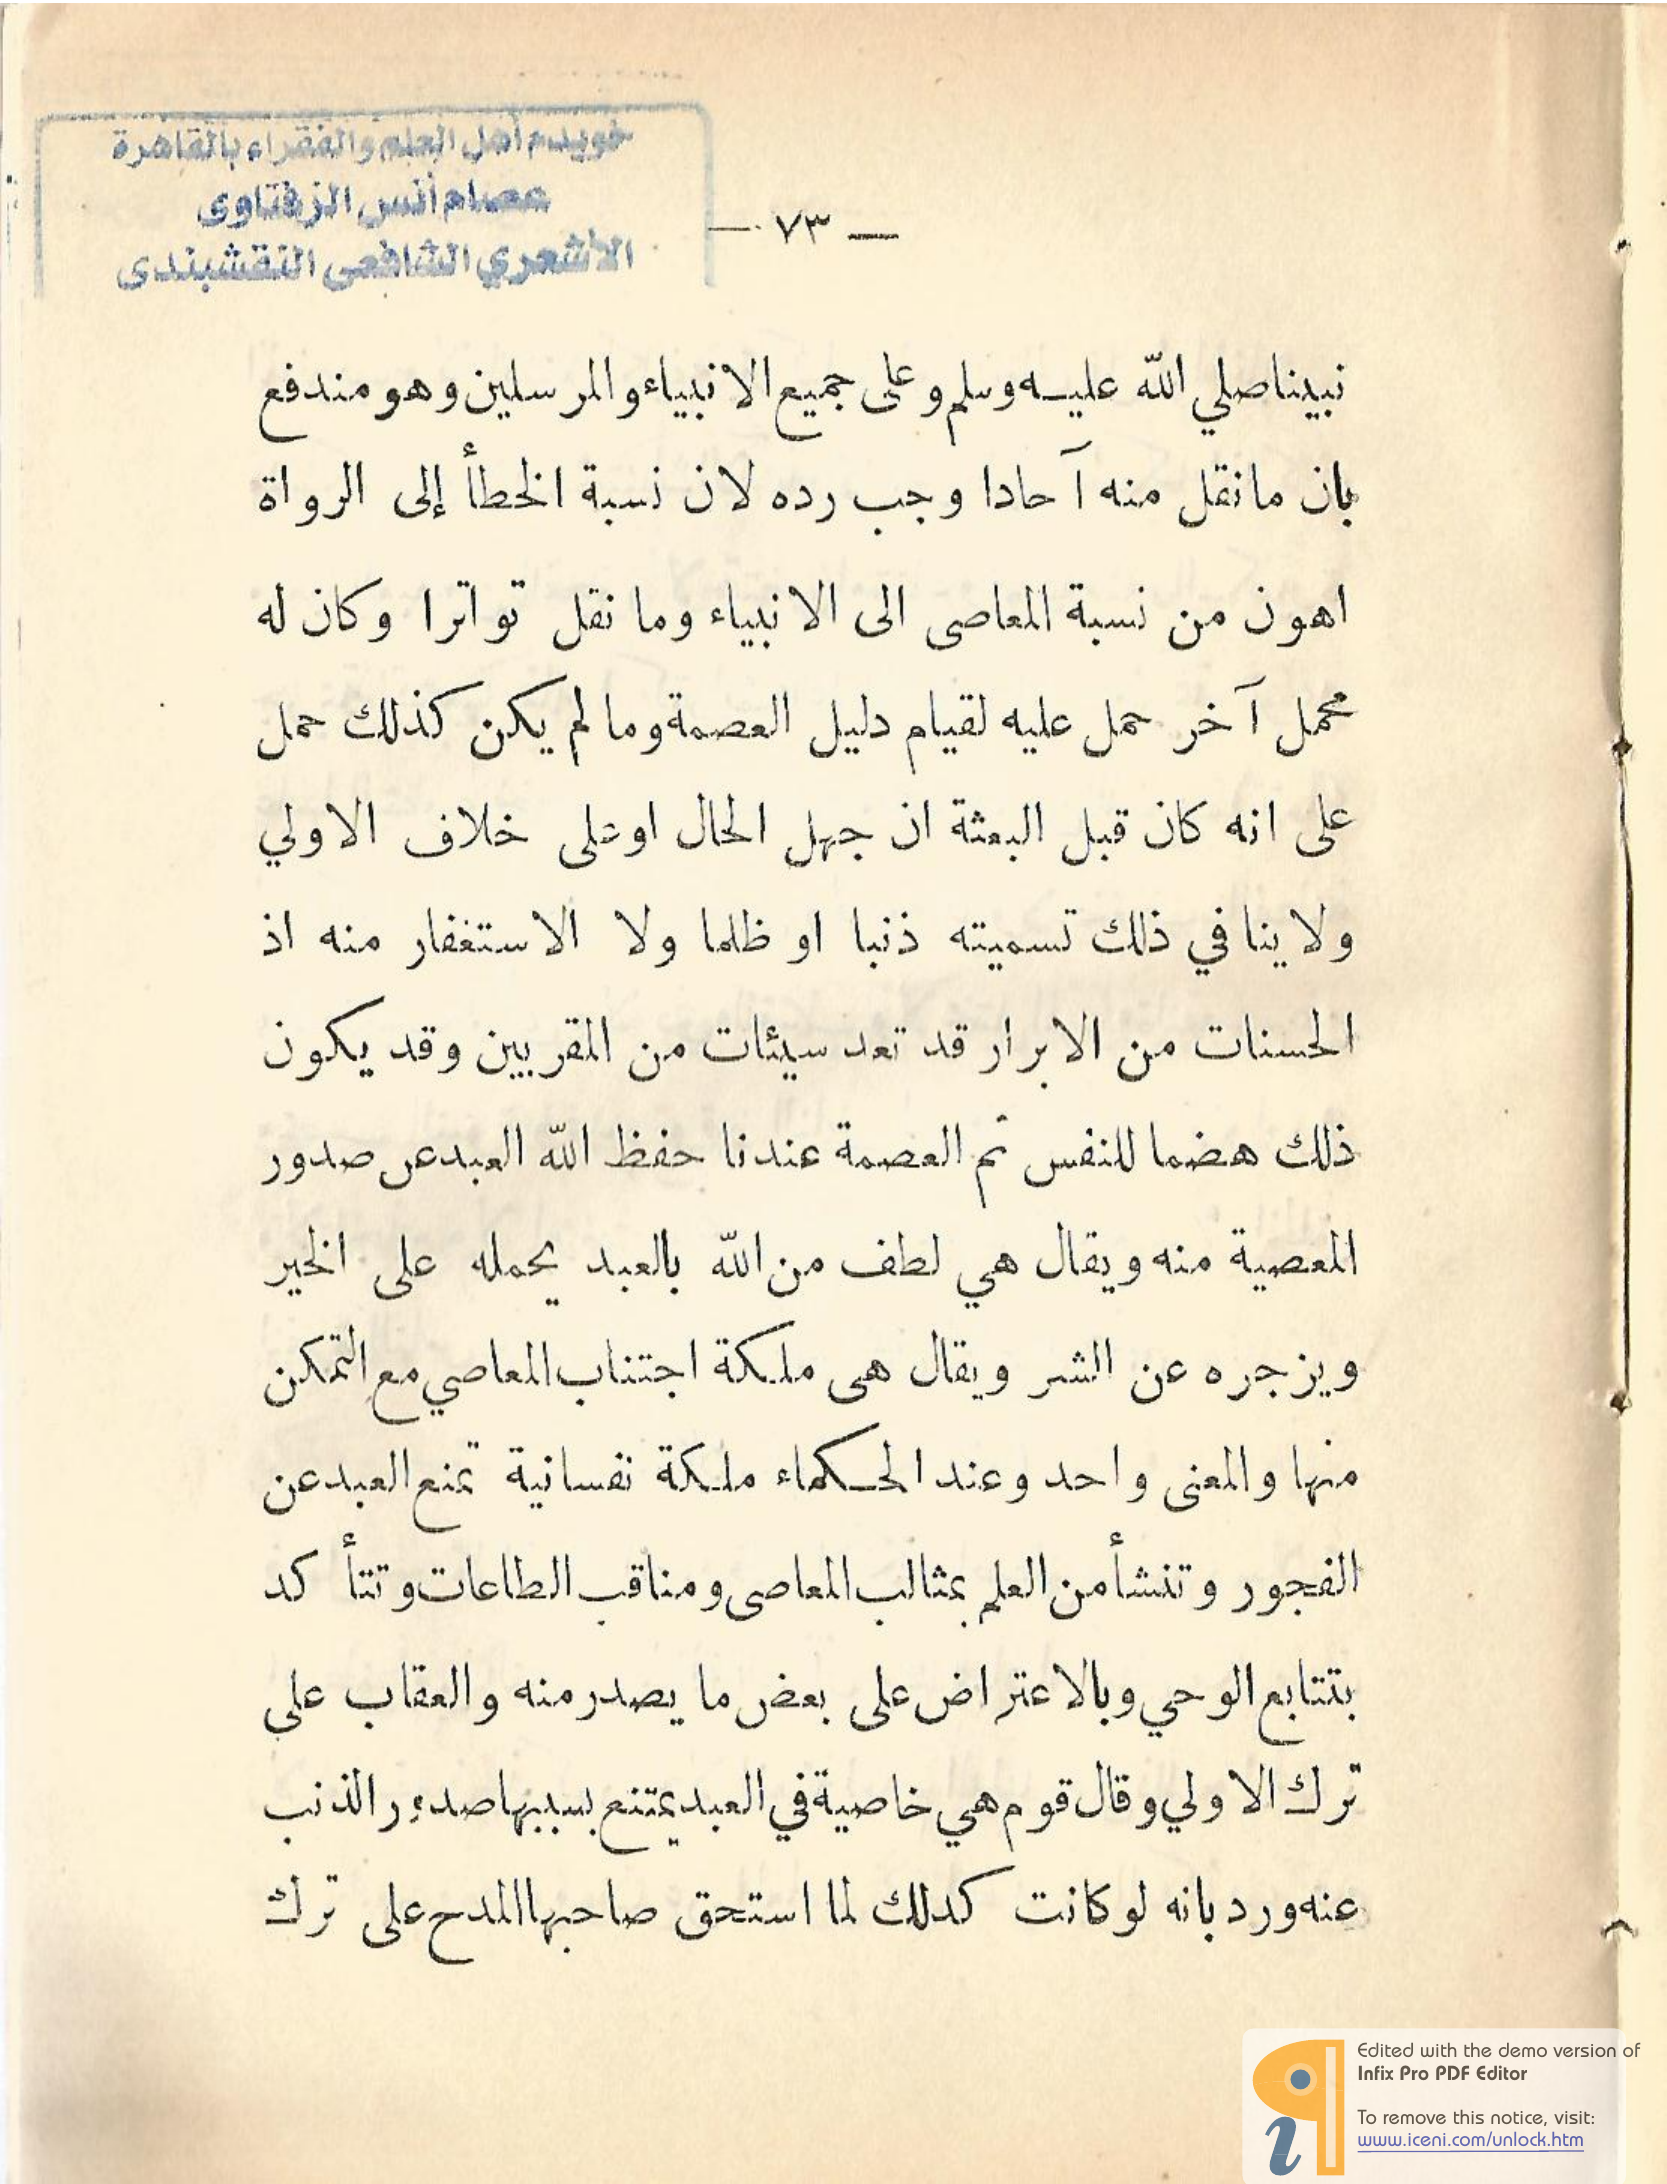 خويدم أهل العلم والفقراء بالقاهرة
عصام أنس الزفتاوى
الأشعري الشافعى النقشبندى
— ٧٣ —
نبيناصلي الله عليه وسلم وعلى جميع الانبياء والمرسلين وهو مندفع
بان مانقل منه آحادا وجب رده لان نسبة الخطأ إلى الرواة
اهون من نسبة المعاصى الى الانبياء وما نقل تواترا وكان له
محمل آخر حمل عليه لقيام دليل العصمة وما لم يكن كذلك حمل
على انه كان قبل البعثة ان جهل الحال اوعلى خلاف الاولي
ولا ينافي ذلك تسميته ذنبا او ظلما ولا الاستغفار منه اذ
الحسنات من الابرار قد تعد سيئات من المقربين وقد يكون
ذلك هضما للنفس ثم العصمة عندنا حفظ الله العبد عن صدور
المعصية منه ويقال هي لطف من الله بالعبد يحمله على الخير
ويزجره عن الشر ويقال هى ملكة اجتناب المعاصي مع التمكن
منها والمعنى واحد وعند الحكماء ملكة نفسانية تمنع العبد عن
الفجور وتنشأ من العلم بمثالب المعاصى ومناقب الطاعات وتتأكد
بتتابع الوحي وبالاعتراض على بعض ما يصدر منه والعقاب علي
ترك الاولي وقال قوم هي خاصية في العبد يمتنع بسببها صدور الذنب
عنه ورد بانه لو كانت كدلك لما استحق صاحبها المدح على ترك
Edited with the demo version of
Infix Pro PDF Editor
To remove this notice, visit:
www.iceni.com/unlock.htm